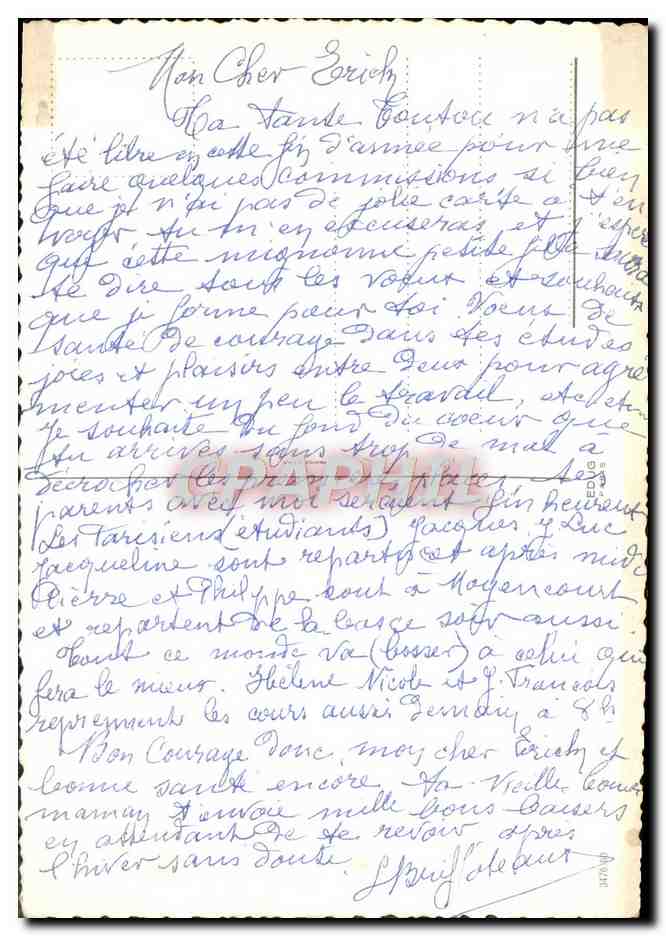 Mon Cher Erich
Ta tante Toutou n'a pas
été libre en cette fin d'année pour me
faire quelques commissions si bien
que je n'ai pas de jolie carte à t'en
voyer tu m'en excuseras et j'espère
que cette mignonne petite saura
te dire tous les vœux et souhaits
que je forme pour toi Vœux de
santé de courage dans tes études
joies et plaisirs entre deux pour agré
menter un peu le travail, etc etc
Je souhaite du fond du cœur que
tu arrives sans trop de mal à
décrocher les places tes
parents avec moi seraient bien heureux
Les Parisiens (étudiants) Jacques y Luc
Jacqueline sont repartis cet après midi
Pierre et Philippe sont à Moyencourt
et repartent de la soir aussi.
Tout ce monde va (bosser) à celui qui
fera le mieux. Hélène Nicole et J. François
reprennent les cours aussi demain à 8h
Bon Courage donc, mon cher Erich et
bonne santé encore. Ta Vieille bonne
maman t'envoie mille bons baisers
en attendant de te revoir après
l'hiver sans doute.
CPAPHIL
EDUG